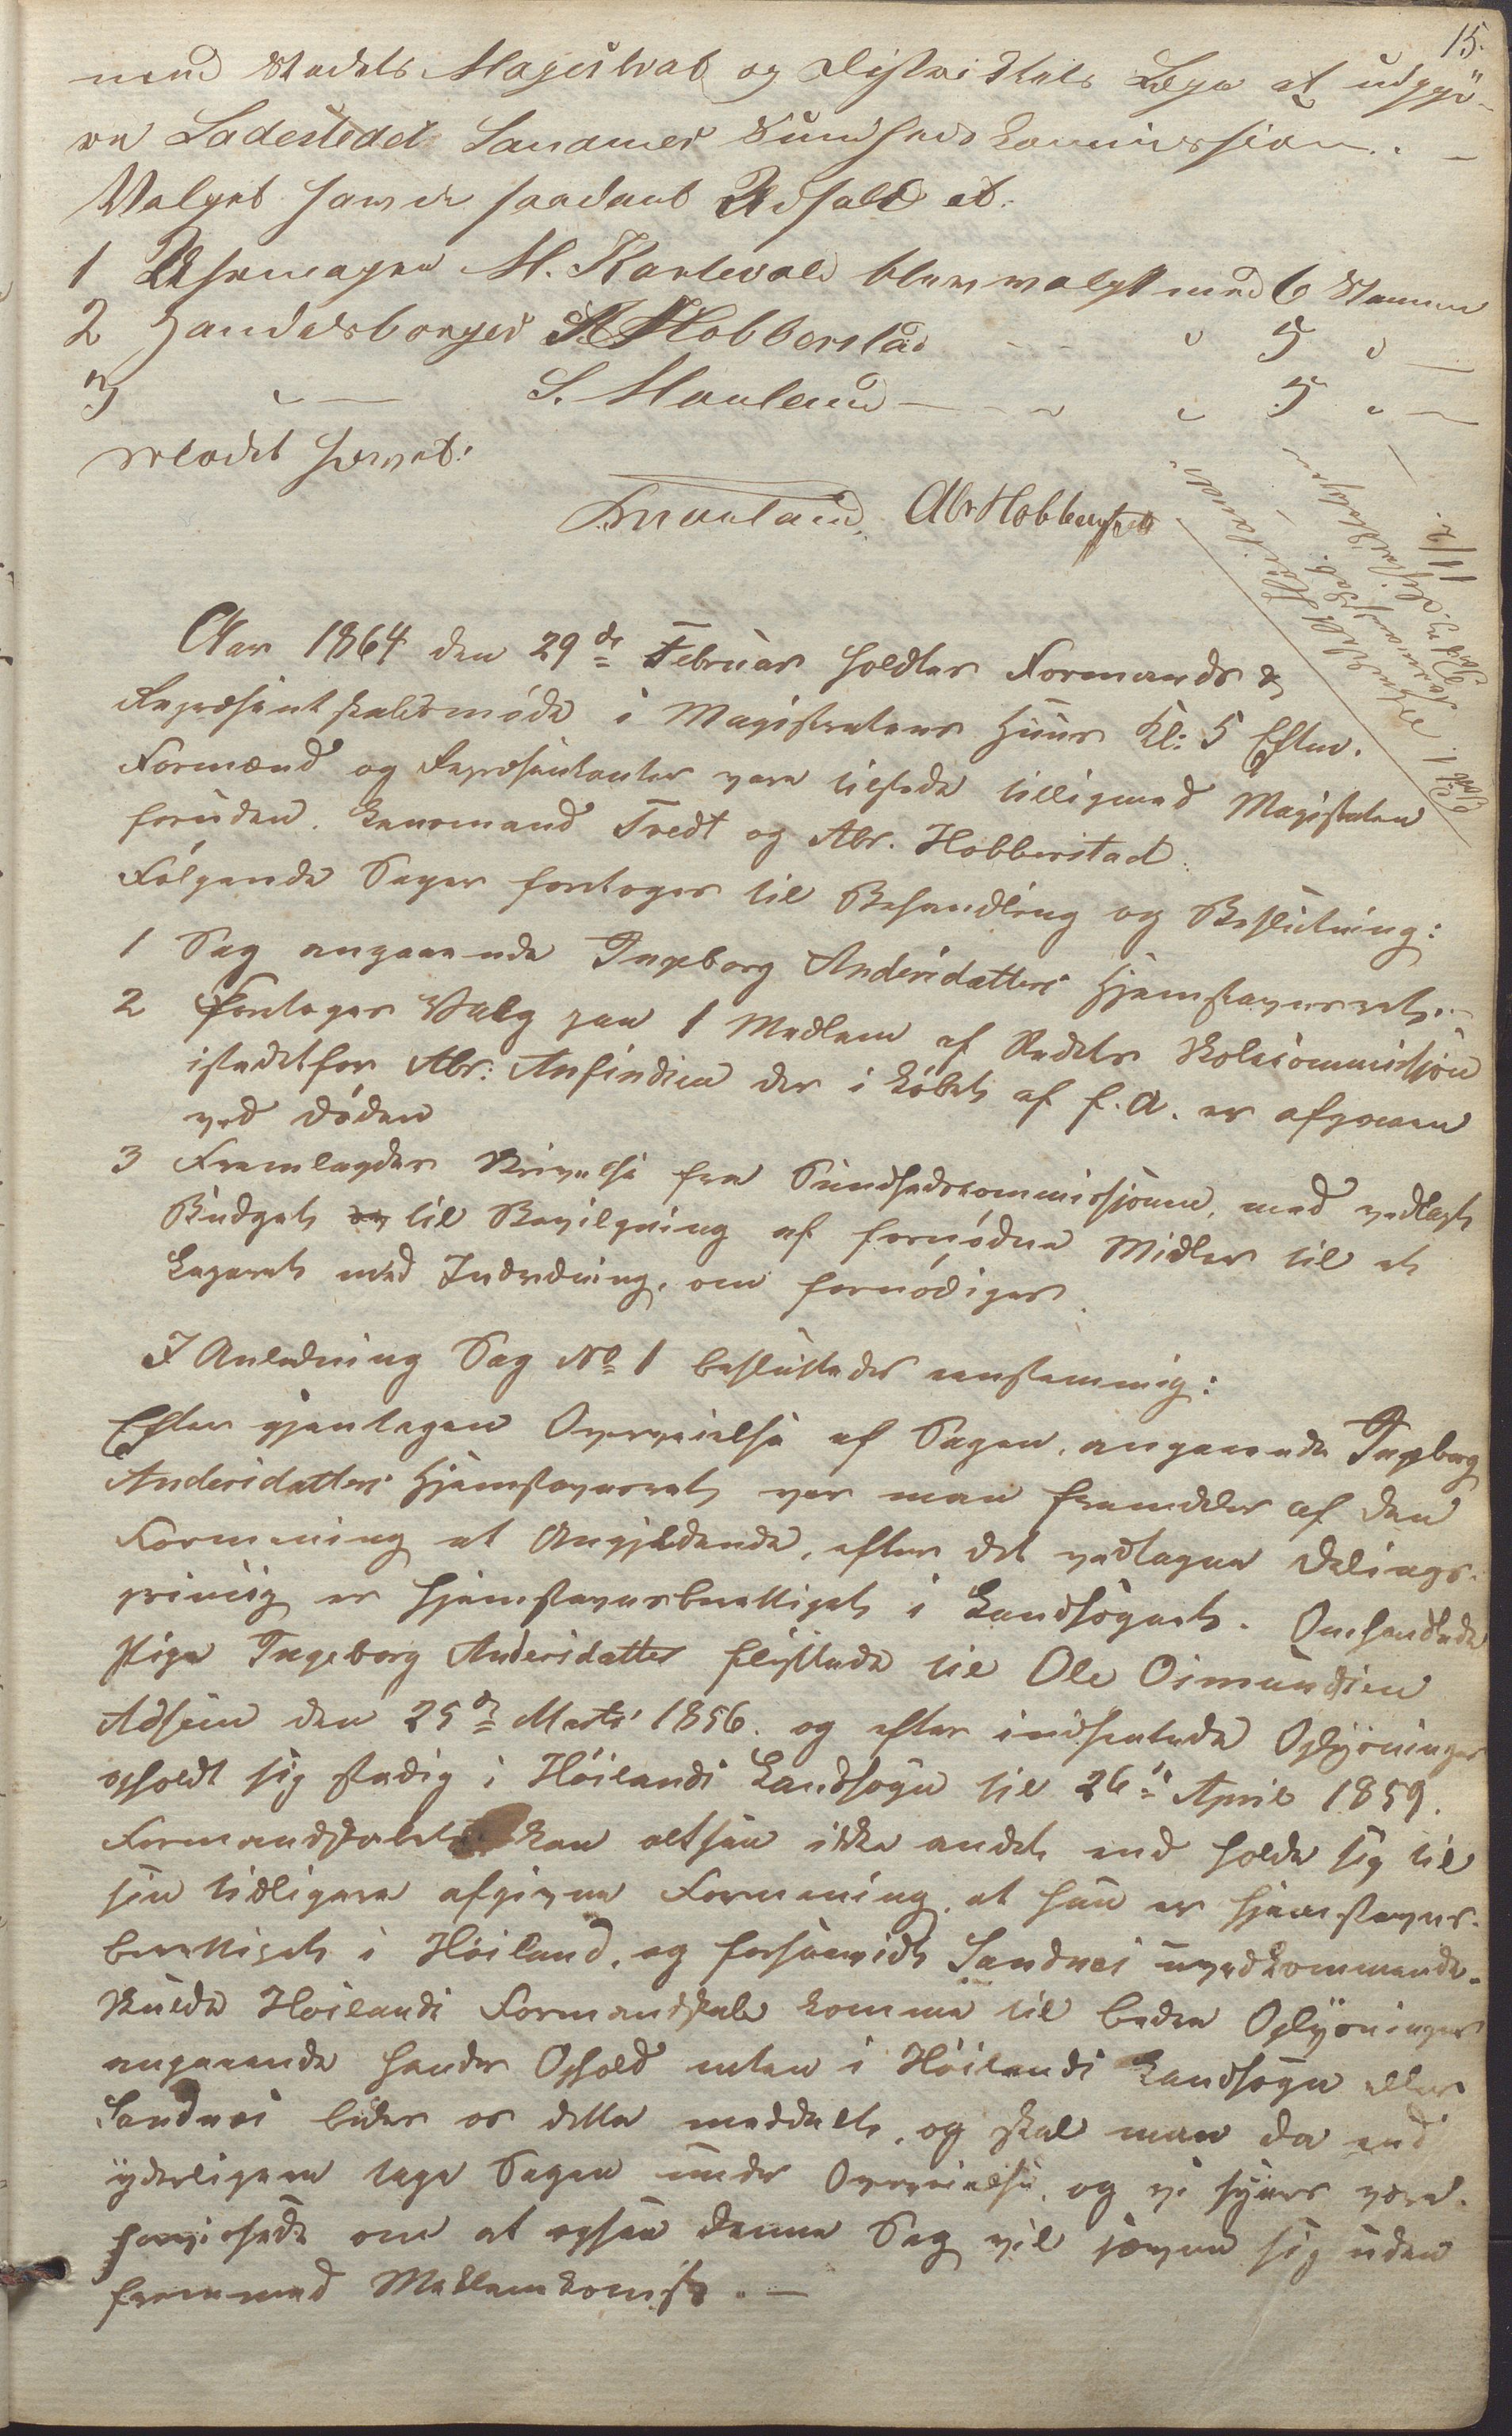 15.
med Stedets Magistrat og Distriktets Læge at udgjö-
re Ladestedet Sandnes Sundhedskommission. -
Valget havde saadant Udfald at:
1 Uhrmager M. Kartevold blev valgt med 6 Stemmer
2 Handelsborger A Hobberstad " 5 "
3 " - S. Mauland - " " 5 " -
Mødet hævet.
Smauland. Abr Hobberstad
Aar 1864 den 29de Februar holdtes Formands &
Repræsentskabsmøde i Magistratens Huus Kl: 5 Efterm.
Formænd og Repræsentanter vare tilstede tilligemed Magistraten
foruden Tvedt og Abr. Hobberstad.
Følgende Sager foretoges til Behandling og Beslutning:
1 Sag angaaende Ingeborg Andersdatters Hjemstavnsret.
2 Foretoges Valg paa 1 Medlem af Stedets Skolecommission
istedetfor Abr: Anfindsen der i Løbet af f. A. er afgaaen
ved Døden
3 Fremlagdes Skrivelse fra Sundhedscommissionen, med vedlagt
Budget og til Bevilgning af fornødne Midler til et
Lazaret med Indredning, om fornødiges.
I Anledning Sag No 1 besluttedes eenstemmig:
Efter gjentagen Overveielse af Sagen, angaaende Ingeborg
Andersdatters Hjemstavnsret var man fremdeles af den
Formening at Angjeldende, efter det vedtagne Delings-
princip er hjemstavnsberettiget i Landsognet. Omhandlede
Pige Ingeborg Andersdatter flyttede til Ole Osmundsen
Adsen den 25de Marts 1856. og efter indhentede Oplysninger
opholdt sig stadig i Höilands Landsogn til 26de April 1859.
Formandskabet kan altsaa ikke andet end holde sig til
sin tidligere afgivne Formening, at hun er hjemstavns-
berettiget i Höiland, og forsaavidt Sandnes uvedkommende.
Skulde Höilands Formandskab komme til bedre Oplysninger
angaaende hendes Ophold enten i Höilands Landsogn eller
Sandnes bedes os dette meddelt, og skal man da end
yderligere tage Sagen under Overveielse, og vi synes være
forvissede om at ogsaa denne Sag vil jævne sig uden
fremmed Mellemkomst. -